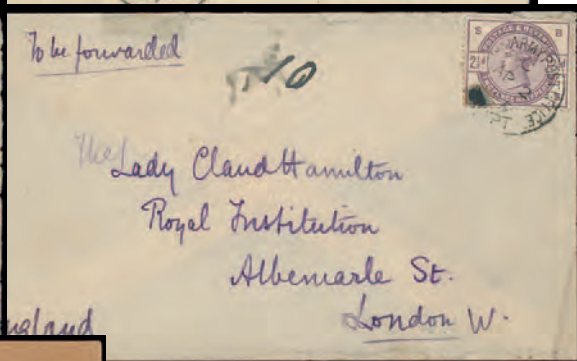 To be forwarded
10
S B
2½d
ARMY POST OFFICE
AP 2
The Lady Claud Hamilton
Royal Institution
Albemarle St.
London W.